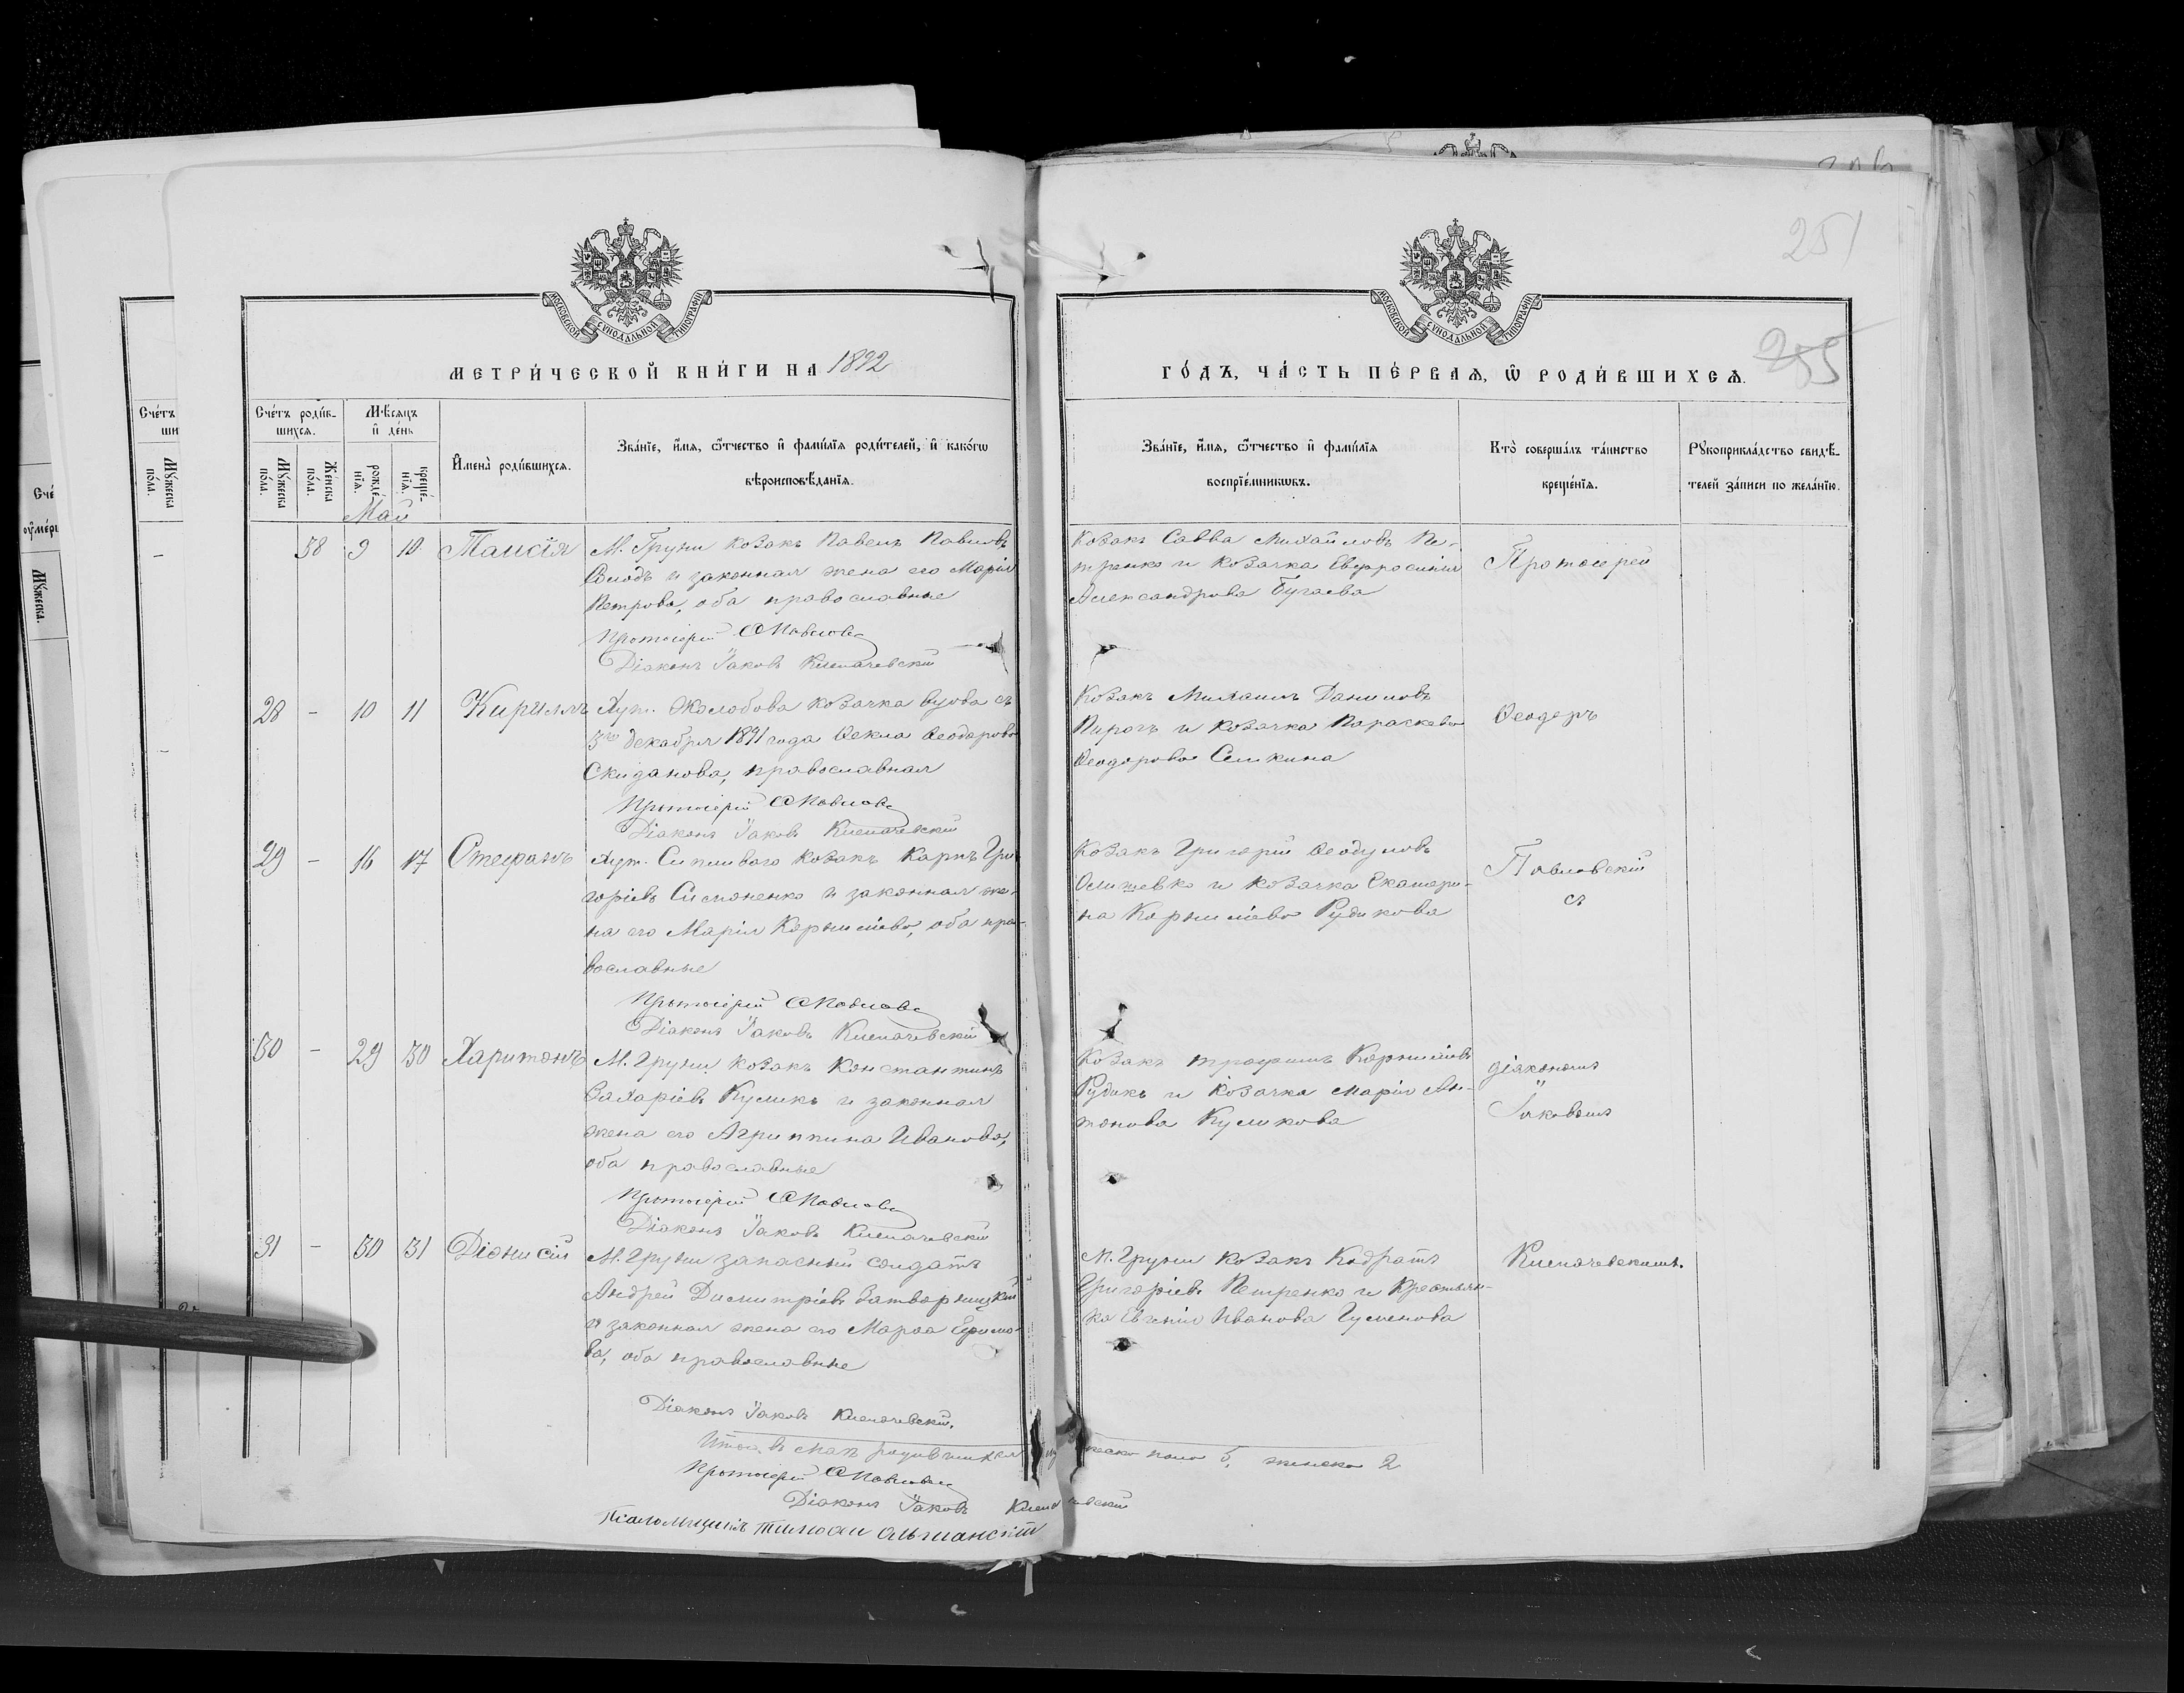 251
255
МОСКОВСКОЙ СѴНОДАЛЬНОЙ ТИПОГРАФІИ
МОСКОВСКОЙ СѴНОДАЛЬНОЙ ТИПОГРАФІИ
МЕТРИ́ЧЕСКОЙ КНИ́ГИ НА 1892
ГО́ДЪ, ЧА́СТЬ ПЕ́РВАѦ, Ѡ҆ РОДИ́ВШИХСѦ.
Сче́тъ роди́в-
шихсѧ.
Мꙋ́жеска по́ла.
Же́нска по́ла.
Мѣ́сѧцъ и҆ де́нь
рожде́-нїѧ.
креще́-нїѧ.
И҆мена̀ роди́вшихсѧ.
Зва́нїе, и҆́мѧ, ѻ҆́тчество и҆ фами́лїѧ роди́телей, и҆ како́гѡ
вѣроисповѣ́данїѧ.
Зва́нїе, и҆́мѧ, ѻ҆́тчество и҆ фами́лїѧ
воспрїе́мникѡвъ.
Кто̀ соверша́лъ та́инство
креще́нїѧ.
Рꙋкоприкла́дство свидѣ́-
телей за́писи по жела́нїю.
Май
58 9 10 Таисія
М. Груни козакъ Павелъ Павловъ
и законная жена его Марія
Петрова, оба православные
Протоіерей Павловс
Діаконъ Іаковъ Клепачевскій
Козакъ Савва Михайловъ Пе-
тренко и козачка Евфросинія
Александрова Бугаева
Протоіерей
28 - 10 11 Кириллъ
Хут. Жолобова козачка вдова съ
3го декабря 1891 года Ѳекла Ѳеодорова
Скиданова, православная
Протоіерей Павловс
Діаконъ Іаковъ Клепачевскій
Козакъ Михаилъ Даниловъ
Пирогъ и козачка Параскева
Ѳеодорова Семкина
Ѳеодоръ
29 - 16 17 Стефанъ
Хут. Сипливаго козакъ Карпъ Гри-
горіевъ Симоненко и законная же-
на его Марія Корниліева, оба пра-
вославные
Протоіерей Павловс
Діаконъ Іаковъ Клепачевскій
Козакъ Григорій Ѳеодуловъ
и козачка Екатери-
на Корниліева Рудикова
Павловскій
съ
30 - 29 30 Харитонъ
М. Груни козакъ Константинъ
Захаріевъ Куликъ и законная
жена его Агриппина Иванова,
оба православные
Протоіерей Павловс
Діаконъ Іаковъ Клепачевскій
Козакъ Трофимъ Корниліевъ
Рудикъ и козачка Марія Ан-
тонова Куликова
діакономъ
Іаковомъ
31 - 30 31 Діонисій
М. Груни запасный солдатъ
Андрей Димитріевъ Затворницкій
и законная жена его Марѳа Ефимо-
ва, оба православные
Діаконъ Іаковъ Клепачевскій.
М. Груни козакъ Кодратъ
Григоріевъ Петренко и крестьян-
ка Евгенія Иванова Гуменова
Клепачевскимъ.
Итого въ маѣ родившихся мужеска пола 5, женска 2
Протоіерей Павловс
Діаконъ Іаковъ Клепачевскій
Псаломщикъ Тимоѳей Ольшанскій